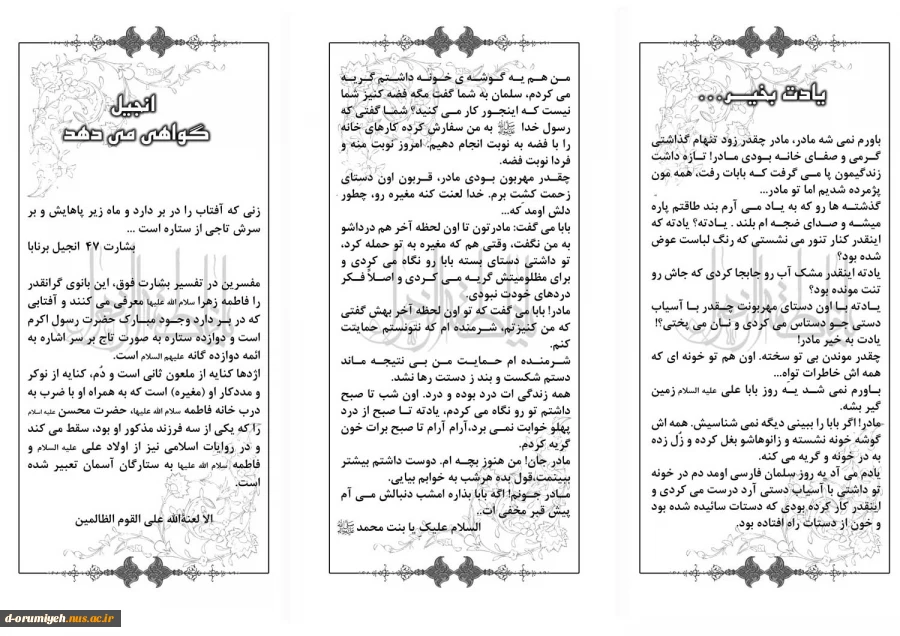 یادت بخیر...
باورم نمی شه مادر، مادر چقدر زود تنهام گذاشتی
گرمی و صفای خانه بودی مادر! تازه داشت
زندگیمون پا می گرفت که بابات رفت، همه مون
پژمرده شدیم اما تو مادر...
گذشته ها رو که به یاد می آرم بند طاقتم پاره
میشه و صدای ضجه ام بلند . یادته؟ یادته که
اینقدر کنار تنور می نشستی که رنگ لباست عوض
شده بود؟
یادته اینقدر مشک آب رو جابجا کردی که جاش رو
تنت مونده بود؟
یادته با اون دستای مهربونت چقدر با آسیاب
دستی جو دستاس می کردی و نان می پختی؟!
یادت به خیر مادر!
چقدر موندن بی تو سخته. اون هم تو خونه ای که
همه اش خاطرات تواِه...
باورم نمی شد یه روز بابا علی علیه السلام زمین
گیر بشه.
مادر! اگر بابا را ببینی دیگه نمی شناسیش. همه اش
گوشه خونه نشسته و زانوهاشو بغل کرده و زُل زده
به در خونه و گریه می کنه.
یادم می آد یه روز سلمان فارسی اومد دم در خونه
تو داشتی با آسیاب دستی آرد درست می کردی و
اینقدر کار کرده بودی که دستات سائیده شده بود
و خون از دستات راه افتاده بود.
من هم یه گوشه ی خونه داشتم گریه
می کردم، سلمان به شما گفت مگه فضه کنیز شما
نیست که اینجور کار می کنید؟ شما گفتی که
رسول خدا ﷺ به من سفارش کرده کارهای خانه
را با فضه به نوبت انجام دهیم. امروز نوبت منه و
فردا نوبت فضه.
چقدر مهربون بودی مادر، قربون اون دستای
زحمت کشت برم. خدا لعنت کنه مغیره رو، چطور
دلش اومد که...
بابا می گفت: مادرتون تا اون لحظه آخر هم درداشو
به من نگفت، وقتی هم که مغیره به تو حمله کرد،
تو داشتی دستای بسته بابا رو نگاه می کردی و
برای مظلومیتش گریه می کردی و اصلاً فکر
دردهای خودت نبودی.
مادر! بابا می گفت که تو اون لحظه آخر بهش گفتی
که من کنیزتم، شرمنده ام که نتونستم حمایتت
کنم.
شرمنده ام حمایت من بی نتیجه ماند
دستم شکست و بند ز دستت رها نشد.
همه زندگی ات درد بوده و درد. اون شب تا صبح
داشتم تو رو نگاه می کردم، یادته تا صبح از درد
پهلو خوابت نمی برد، آرام آرام تا صبح برات خون
گریه کردم.
مادر جان! من هنوز بچه ام. دوست داشتم بیشتر
ببینمت، قول بده هرشب به خوابم بیایی.
مادر جونم! اگه بابا بذاره امشب دنبالش می آم
پیش قبر مخفی ات..
السلام علیکِ یا بنت محمد ﷺ
انجیل
گواهی می دهد
زنی که آفتاب را در بر دارد و ماه زیر پاهایش و بر
سرش تاجی از ستاره است ...
بشارت ۴۷ انجیل برنابا
مفسرین در تفسیر بشارت فوق، این بانوی گرانقدر
را فاطمه زهرا سلام الله علیها معرفی می کنند و آفتابی
که در بر دارد وجود مبارک حضرت رسول اکرم
است و دوازده ستاره به صورت تاج بر سر اشاره به
ائمه دوازده گانه علیهم السلام است.
اژدها کنایه از ملعون ثانی است و دُم، کنایه از نوکر
و مددکار او (مغیره) است که به همراه او با ضرب به
درب خانه فاطمه سلام الله علیها، حضرت محسن علیه اسلام
را که یکی از سه فرزند مذکور او بود، سقط می کند
و در روایات اسلامی نیز از اولاد علی علیه السلام و
فاطمه سلام الله علیها به ستارگان آسمان تعبیر شده
است.
الا لعنةالله علی القوم الظالمین
d-orumiyeh.nus.ac.ir